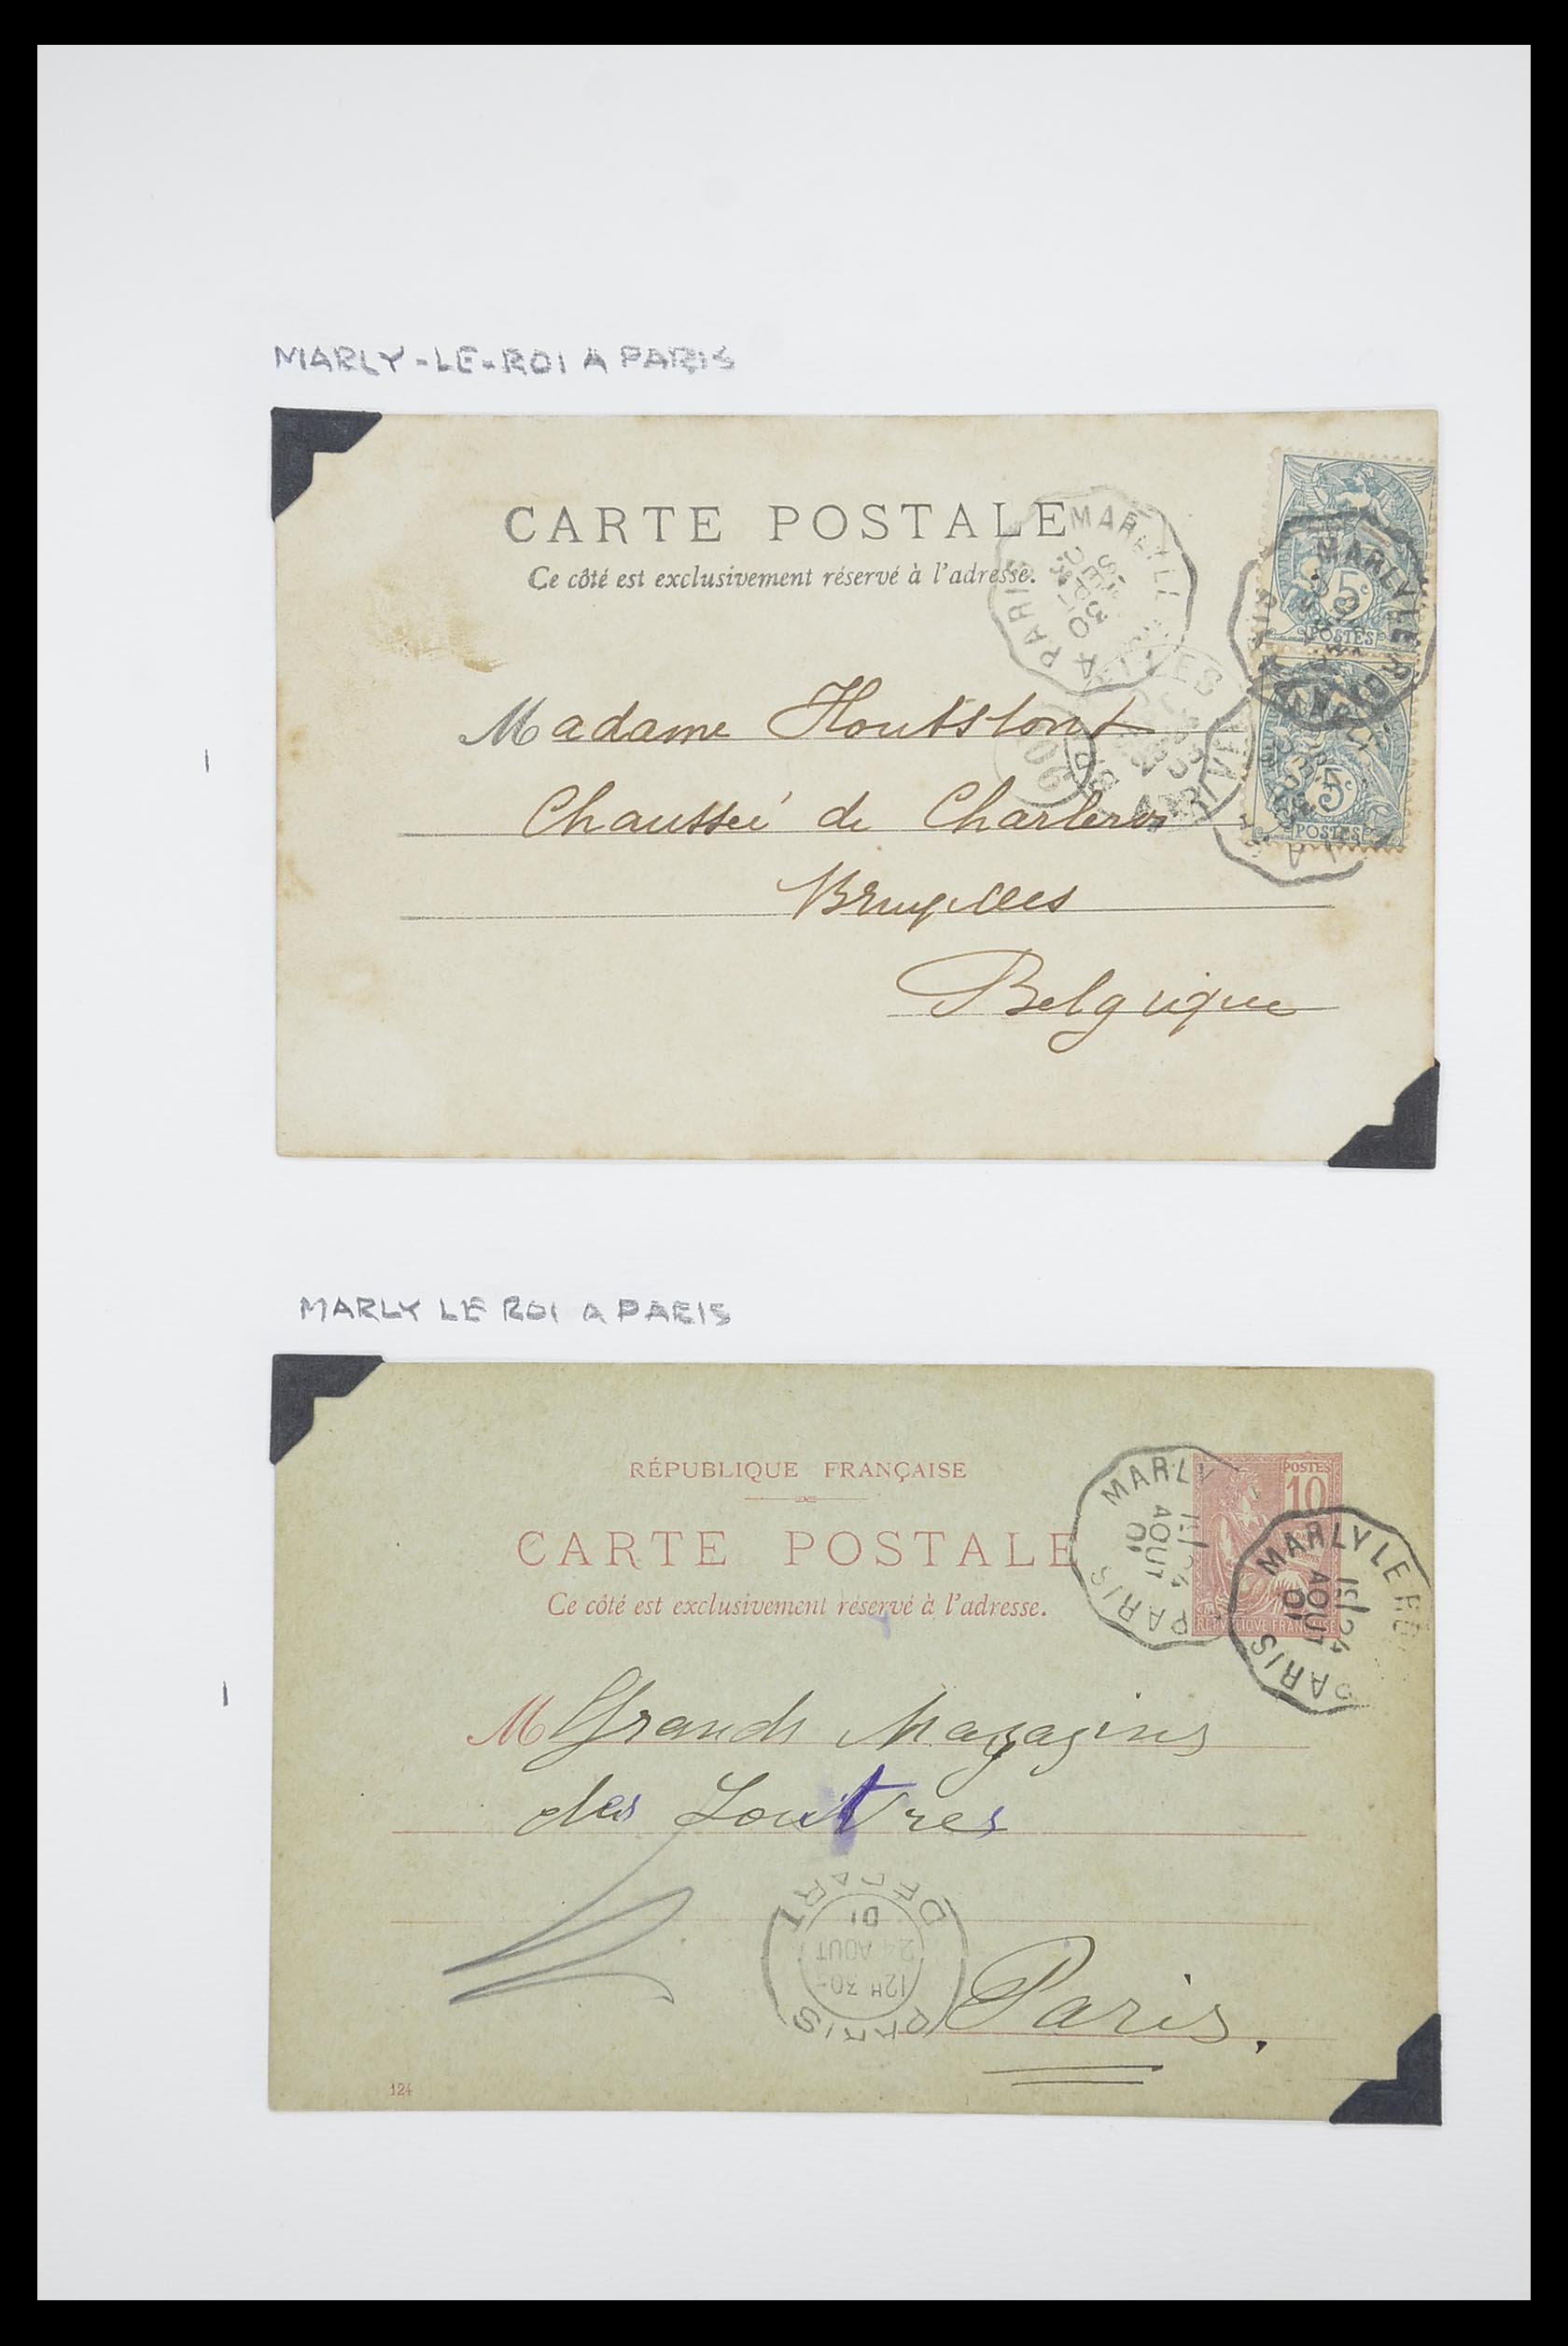 MARLY-LE-ROI A PARIS
CARTE POSTALE
Ce côté est exclusivement réservé à l'adresse.
MARLY LE
30
SEPT
PARIS
5c
POSTES
MARLY LE R
5c
POSTES
ARRIVEE
Madame
Chaussée de Charleroi
Bruxelles
Belgique
MARLY LE ROI A PARIS
RÉPUBLIQUE FRANÇAISE
CARTE POSTALE
Ce côté est exclusivement réservé à l'adresse.
POSTES
10
REPUBLIQUE FRANÇAISE
MARLY
24
AOUT
01
PARIS
MARLY LE RO
24
AOUT
01
PARIS
M Grands Magazins
des Louvres
PARIS
12H 30
24 AOUT
01
DEPART
Paris.
124